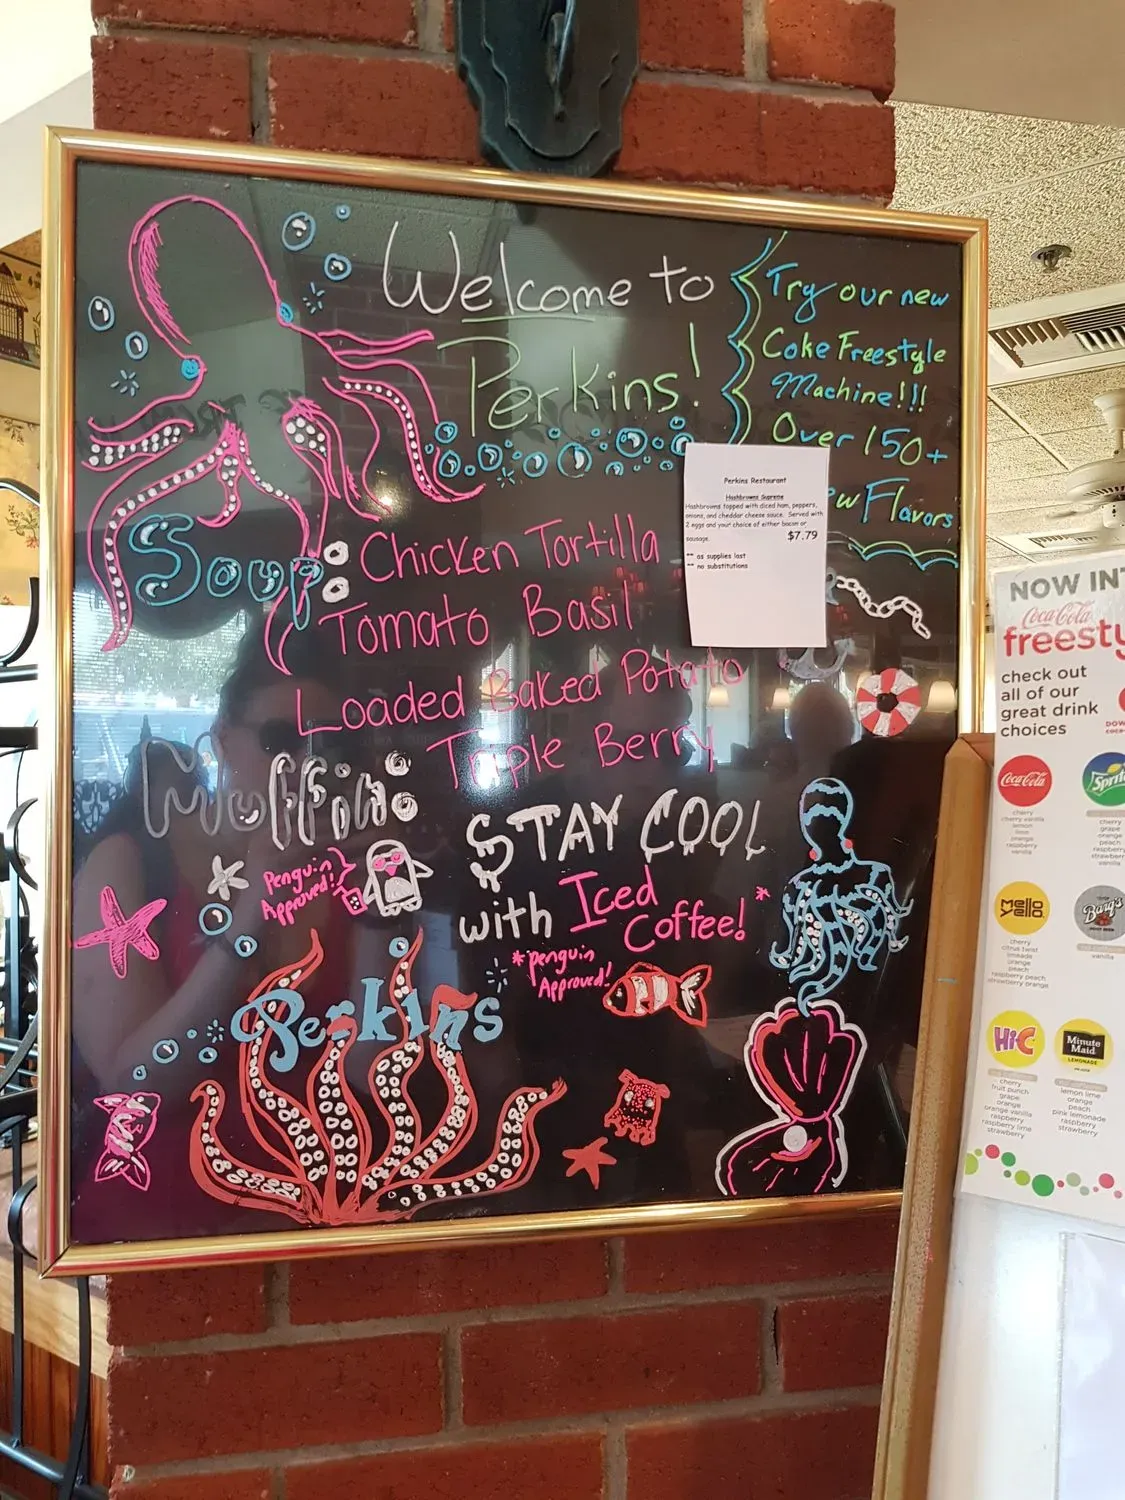 Welcome to
Perkins!
Try our new
Coke Freestyle
Machine!!!
Over 150+
Flavors
Perkins Restaurant
Hashbrowns Supreme
Hashbrowns topped with diced ham, peppers,
onions, and cheddar cheese sauce. Served with
2 eggs and your choice of either bacon or
sausage. $7.79
** as supplies last
** no substitutions
Soup:
Chicken Tortilla
Tomato Basil
Loaded Baked Potato
Muffin:
Triple Berry
Penguin
Approved!
STAY COOL
with Iced
Coffee! *
*Penguin
Approved!
Perkins
NOW IN
Coca-Cola
freesty
check out
all of our
great drink
choices
Coca-Cola
cherry
cherry vanilla
lemon
lime
orange
raspberry
vanilla
Sprite
cherry
grape
orange
peach
raspberry
strawberry
vanilla
mello
yello
cherry
citrus twist
limeade
orange
peach
raspberry peach
strawberry orange
Barq's
vanilla
Hi-C
cherry
fruit punch
grape
orange
orange vanilla
raspberry
raspberry lime
strawberry
Minute
Maid
LEMONADE
lemon lime
orange
peach
pink lemonade
raspberry
strawberry